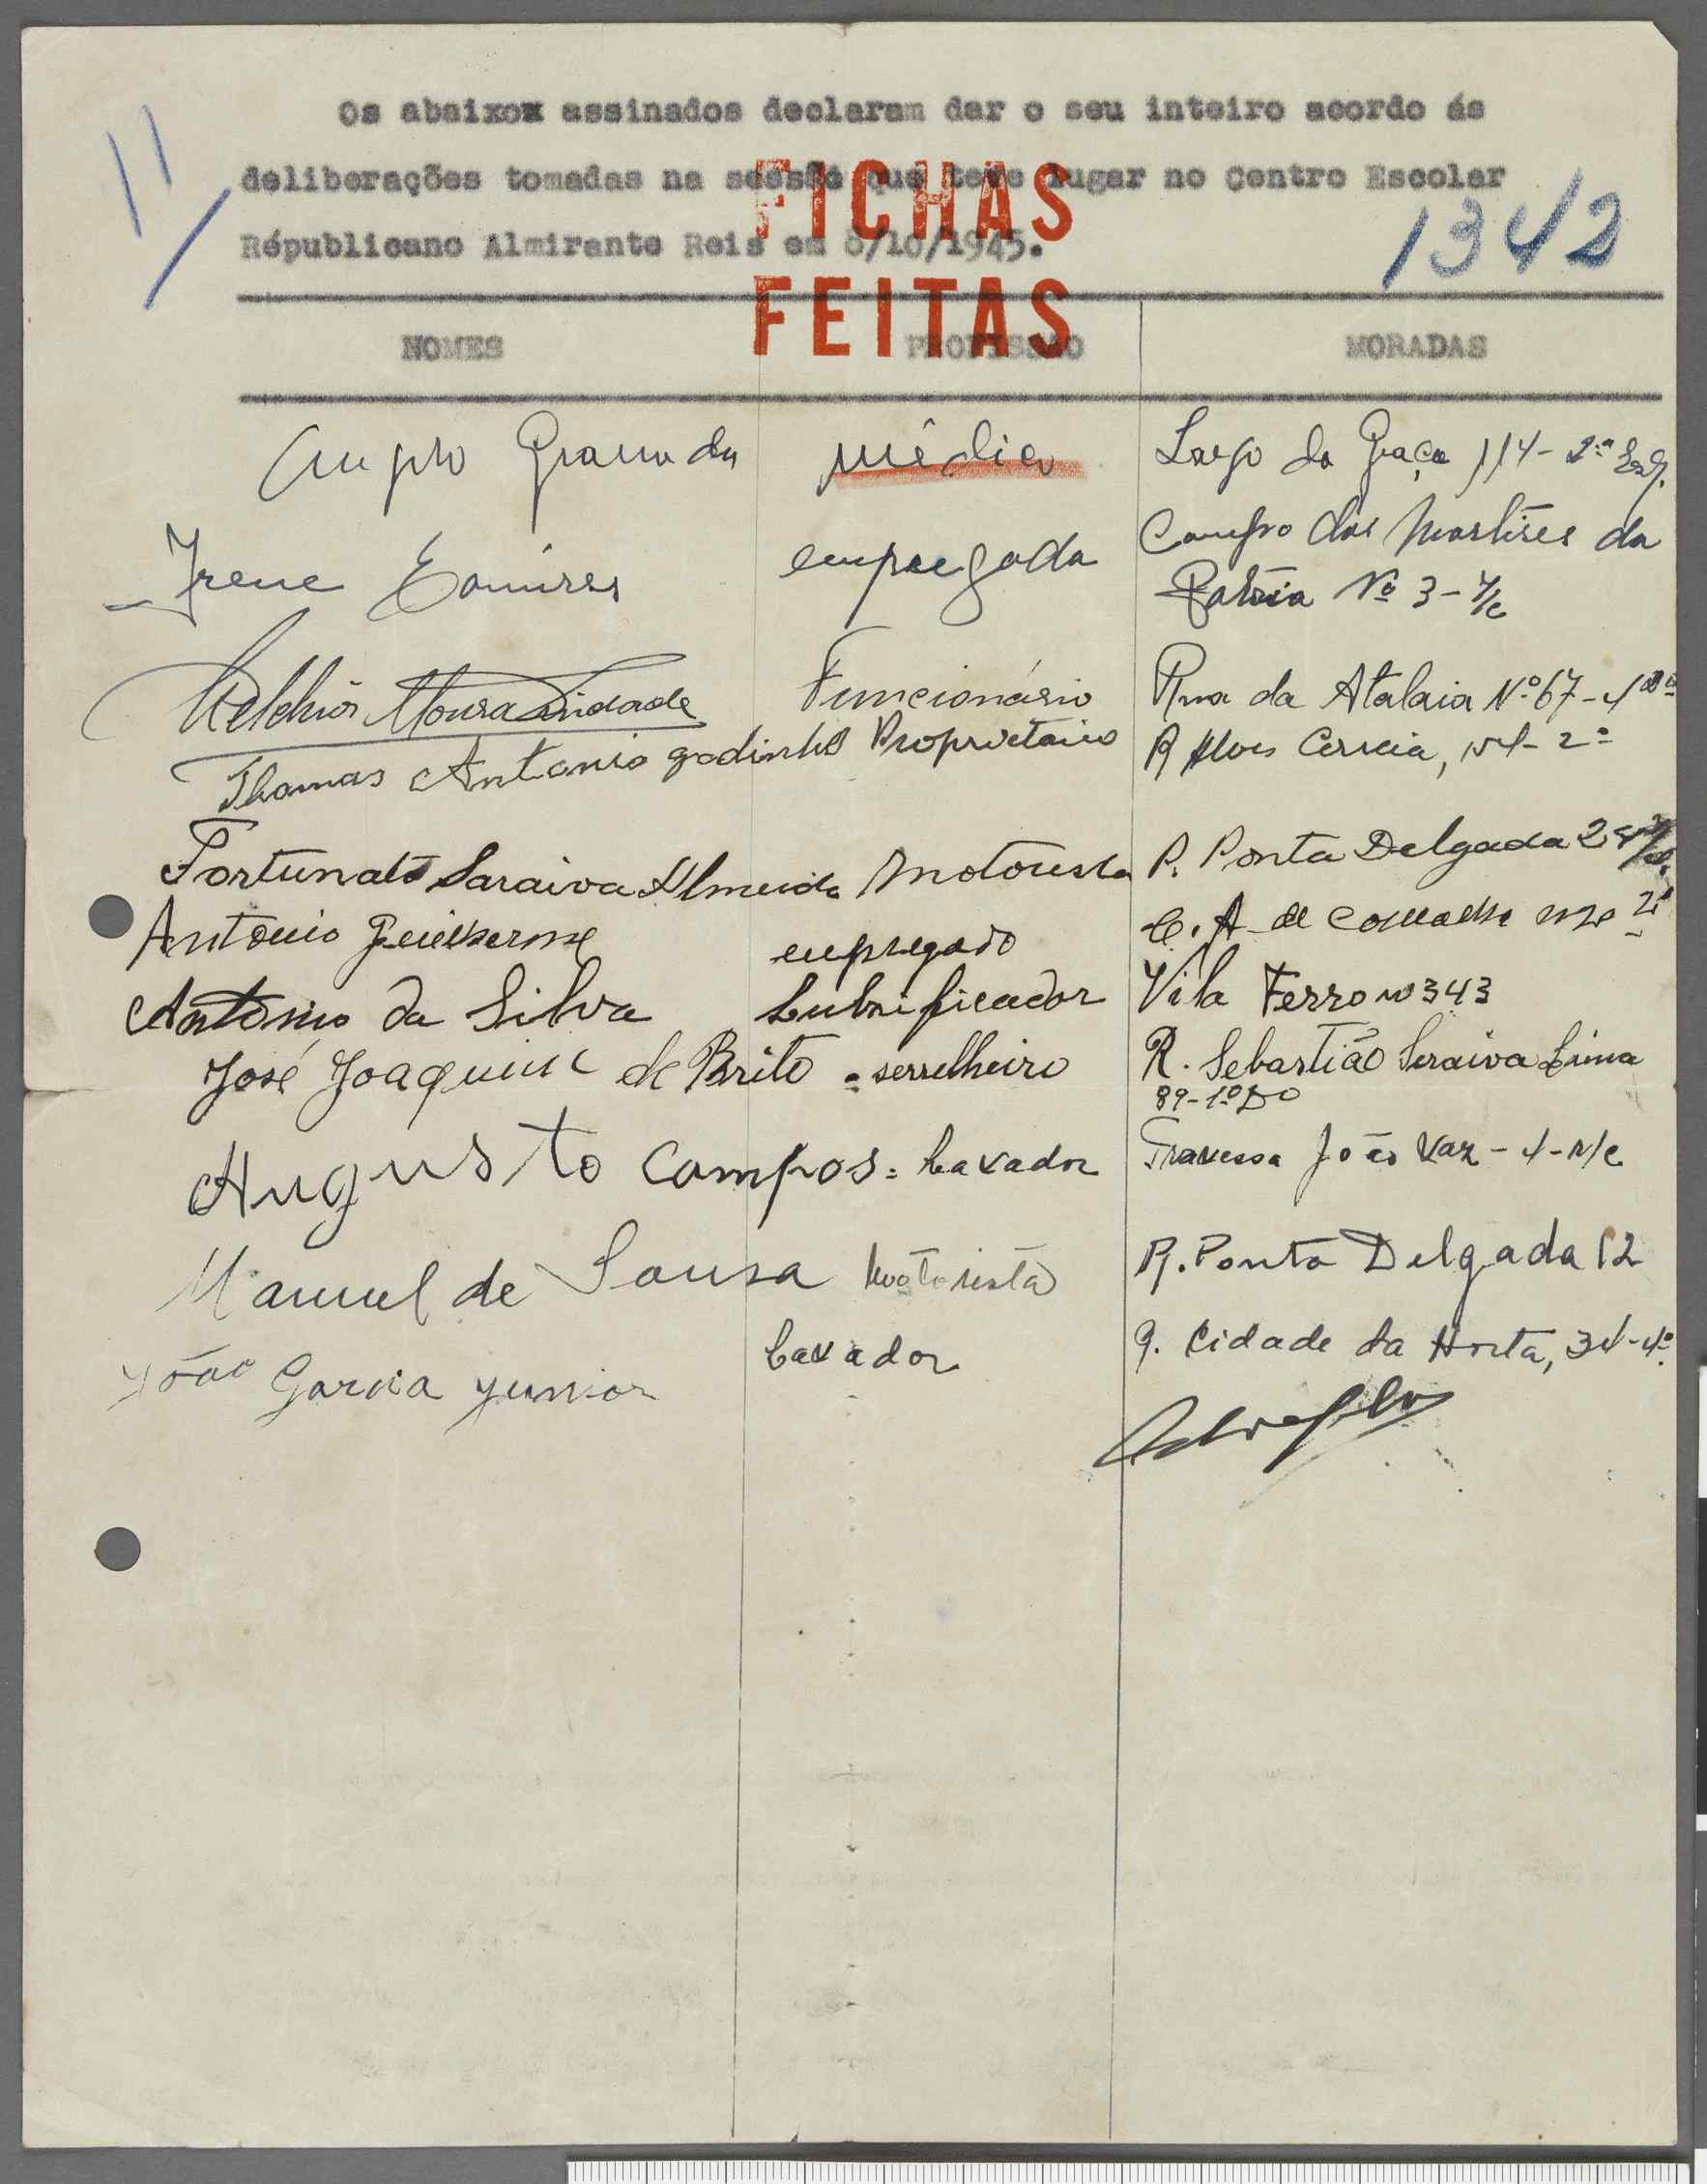 Os abaixox assinados declaram dar o seu inteiro acordo ás
deliberações tomadas na sessão que teve lugar no Centro Escolar
Républicano Almirante Reis em 8/10/1945.
11/
1342
FICHAS
FEITAS
NOMES PROFISSÃO MORADAS
Granada médica Largo da Graça 114-2º Esq.
Irene empregada Campo dos Martires da
Patria Nº 3- r/c
Melchior Moura Andrade Funcionário Rua da Atalaia Nº 67-
Thomas Antonio godinho Proprietario R Alves Correia, 2º
Fortunato Saraiva Almeida Motorista R. Ponta Delgada
Antonio Guilherme empregado
Antonio da Silva Lubrificador Vila Ferro nº 343
José Joaquim de Brito = serrelheiro R. Sebastião Saraiva Lima
89-1º Dº
Augusto Campos = Lavador Travessa João Vaz - 4 - r/c
Manuel de Sousa Motorista R. Ponta Delgada 12
João Garcia Junior Lavador R. Cidade da Horta, 34-4º